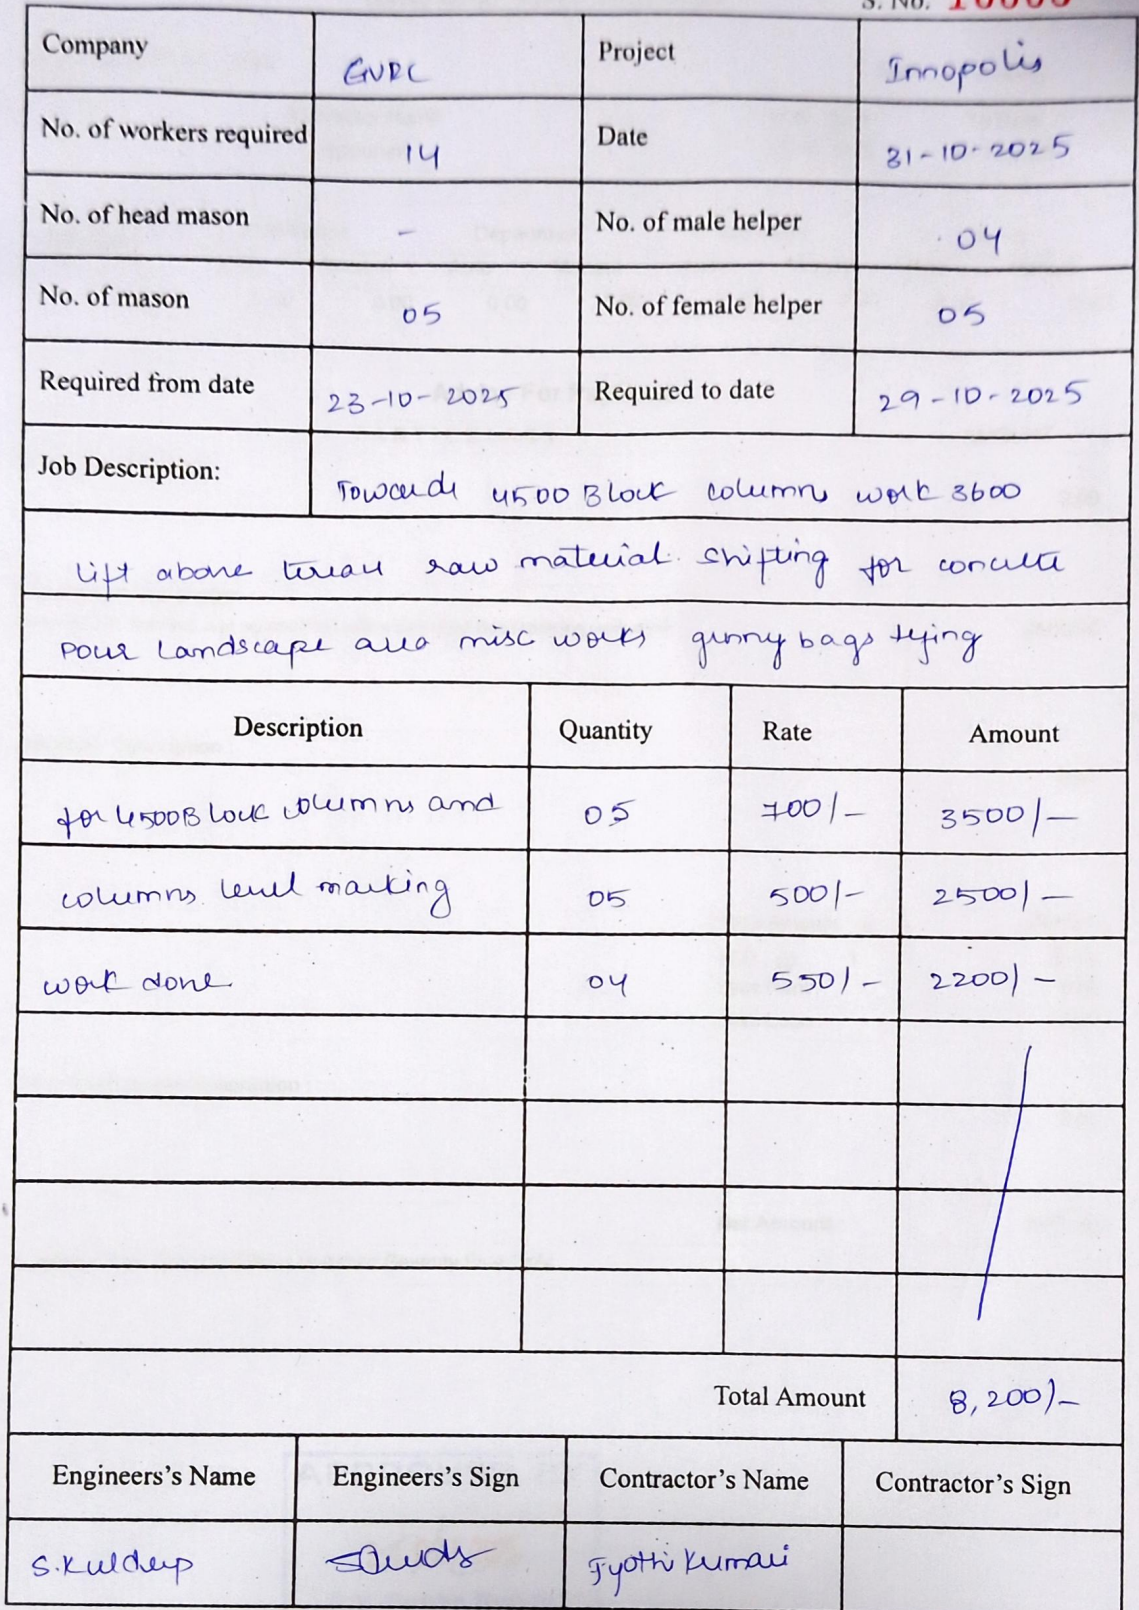 S. No.
Company GVRC Project Innopolis
No. of workers required 14 Date 31-10-2025
No. of head mason - No. of male helper 04
No. of mason 05 No. of female helper 05
Required from date 23-10-2025 Required to date 29-10-2025
Job Description: Towards 4500 Block columns work 3600
lift above terrace raw material shifting for concrete
pour Landscape area misc works gunny bags tying
Description Quantity Rate Amount
for 4500 Block columns and 05 700/- 3500/-
columns level marking 05 500/- 2500/-
work done 04 550/- 2200/-
Total Amount 8,200/-
Engineers's Name Engineers's Sign Contractor's Name Contractor's Sign
S. Kuldeep Jyothi Kumari